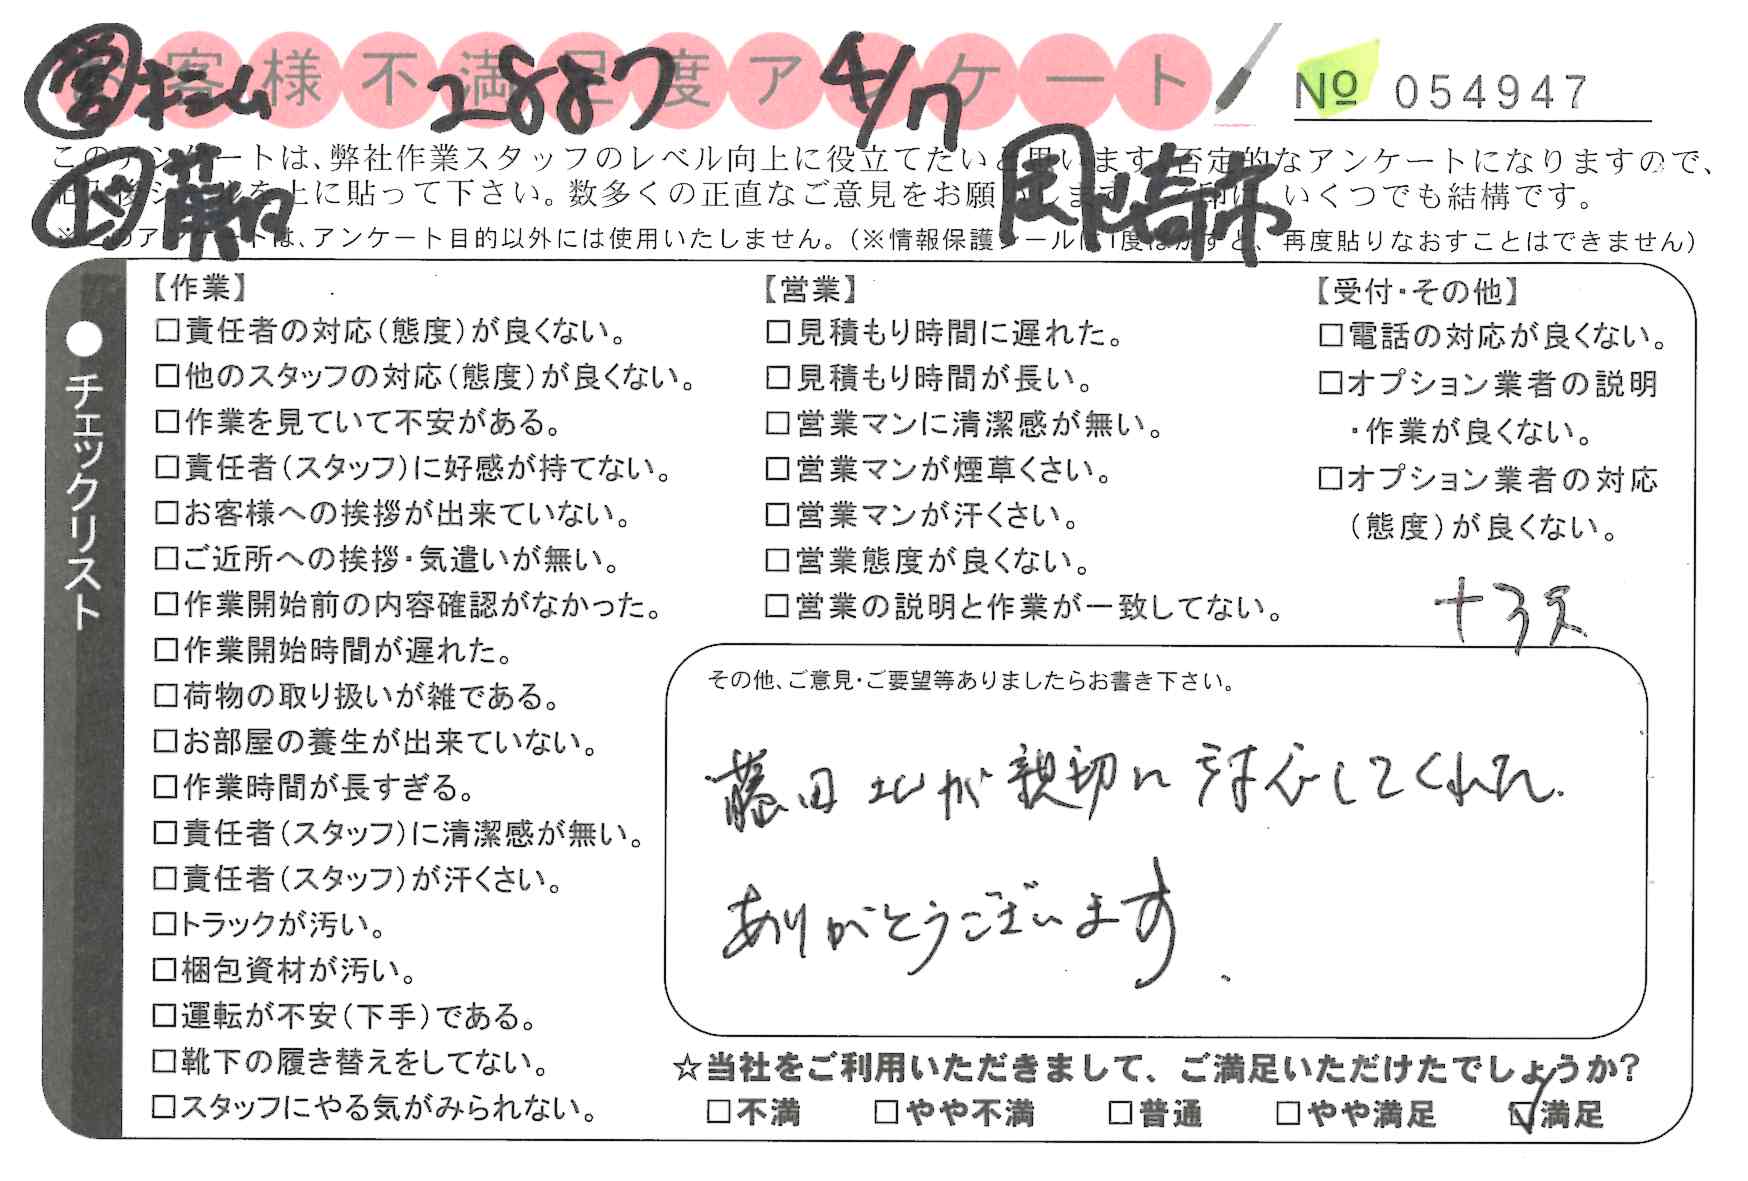 お客様不満足度アンケート
営 杉山 2887 4/17
№ 054947
このアンケートは、弊社作業スタッフのレベル向上に役立てたいと思います。否定的なアンケートになりますので、
記入後シールを上に貼って下さい。数多くの正直なご意見をお願いします。 いくつでも結構です。
岡崎市
※このアンケートは、アンケート目的以外には使用いたしません。(※情報保護シールは1度はがすと、再度貼りなおすことはできません)
●チェックリスト
【作業】
□責任者の対応(態度)が良くない。
□他のスタッフの対応(態度)が良くない。
□作業を見ていて不安がある。
□責任者(スタッフ)に好感が持てない。
□お客様への挨拶が出来ていない。
□ご近所への挨拶・気遣いが無い。
□作業開始前の内容確認がなかった。
□作業開始時間が遅れた。
□荷物の取り扱いが雑である。
□お部屋の養生が出来ていない。
□作業時間が長すぎる。
□責任者(スタッフ)に清潔感が無い。
□責任者(スタッフ)が汗くさい。
□トラックが汚い。
□梱包資材が汚い。
□運転が不安(下手)である。
□靴下の履き替えをしてない。
□スタッフにやる気がみられない。
【営業】
□見積もり時間に遅れた。
□見積もり時間が長い。
□営業マンに清潔感が無い。
□営業マンが煙草くさい。
□営業マンが汗くさい。
□営業態度が良くない。
□営業の説明と作業が一致してない。
【受付・その他】
□電話の対応が良くない。
□オプション業者の説明
・作業が良くない。
□オプション業者の対応
(態度)が良くない。
+3点
その他、ご意見・ご要望等ありましたらお書き下さい。
藤田さんが親切に対応してくれた.
ありがとうございます.
☆当社をご利用いただきまして、ご満足いただけたでしょうか?
□不満 □やや不満 □普通 □やや満足 ☑満足